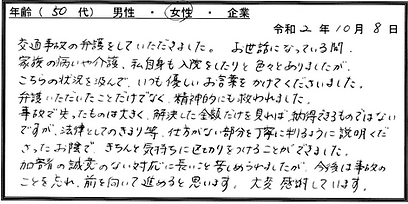 年齢（ 50 代） 男性 ・ 女性 ・ 企業
令和 2 年 10 月 8 日
交通事故の弁護をしていただきました。 お世話になっている間、
家族の病いや介護、私自身も入院をしたりと色々とありましたが、
こちらの状況を汲んで、いつも優しいお言葉をかけてくださいました。
弁護いただいたことだけでなく、精神的にも救われました。
事故で失ったものは大きく、解決した金額だけを見れば、納得できるものではない
ですが、法律としてのきまり等、仕方がない部分を丁寧に判るように説明くだ
さったお陰で、きちんと気持ちに区切りをつけることができました。
加害者の誠意のない対応に長いこと苦しめられましたが、今後は事故の
ことを忘れ、前を向いて進めると思います。 大変感謝しています。